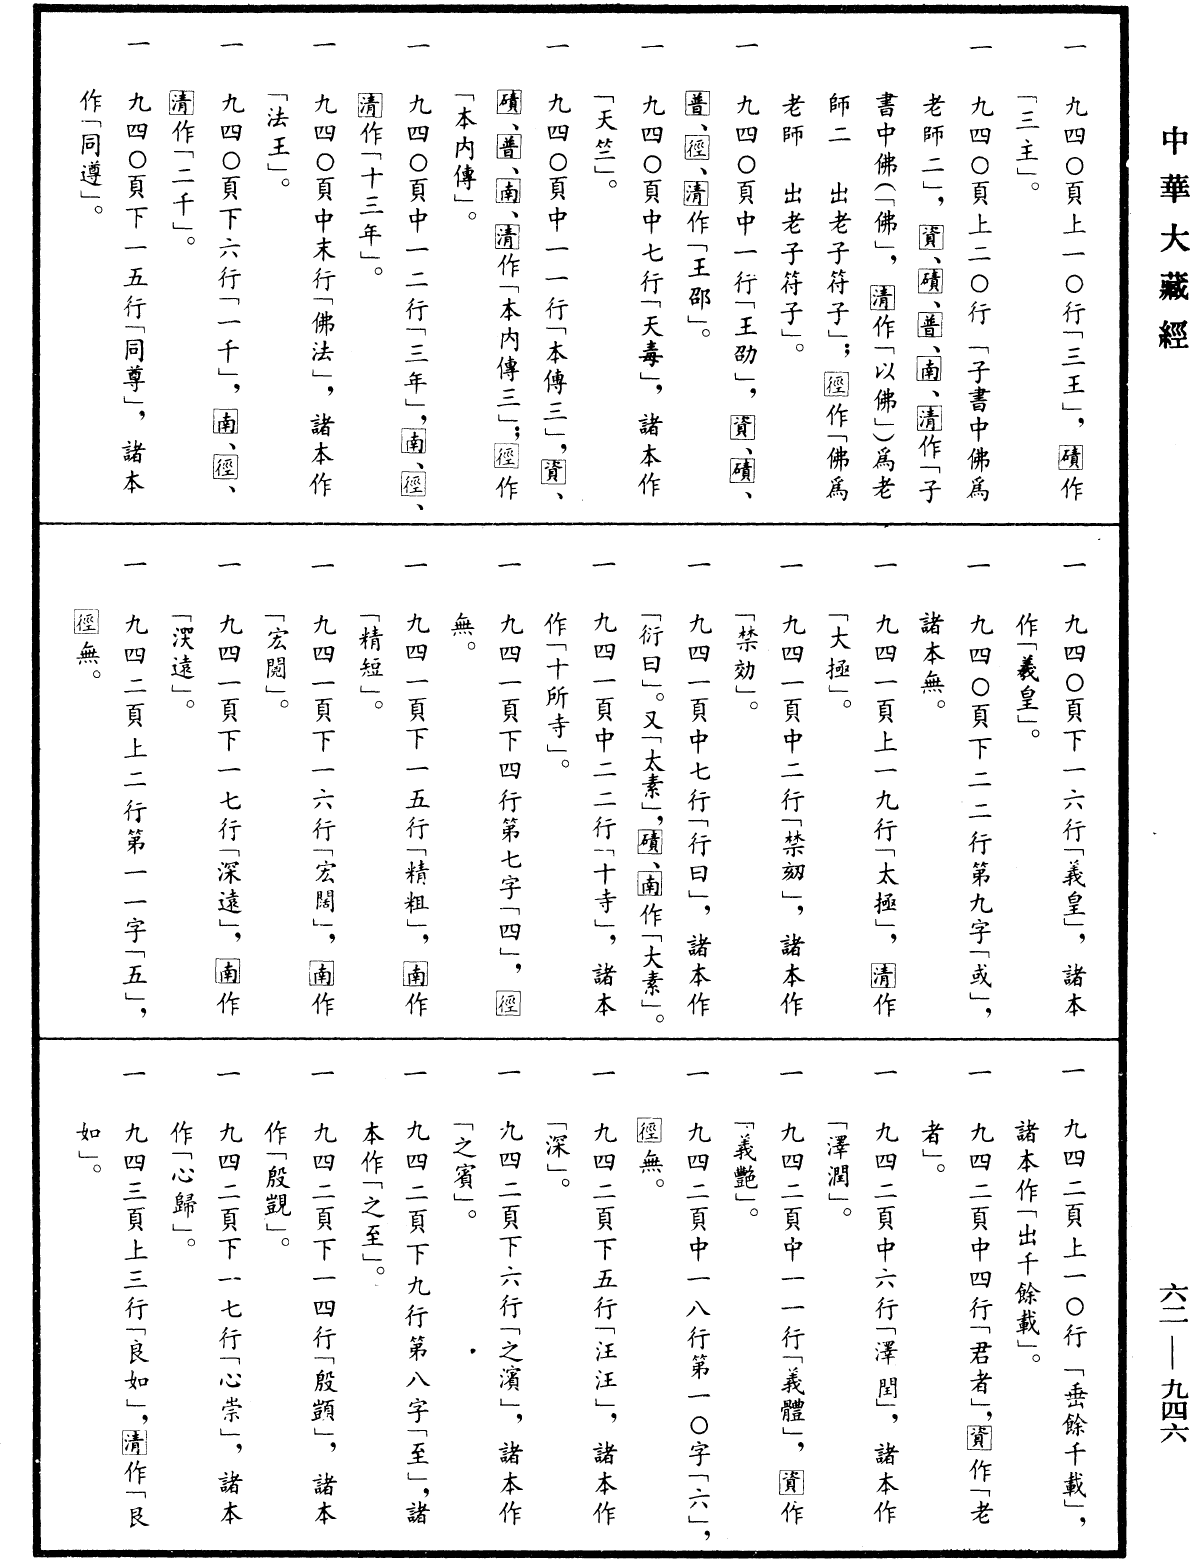 中華大藏經
一　九四〇頁上一〇行「三王」，磧作
「三主」。
一　九四〇頁上二〇行「子書中佛爲
老師二」，資、磧、普、南、清作「子
書中佛（「佛」，清作「以佛」）爲老
師二　出老子符子」；徑作「佛爲
老師　出老子符子」。
一　九四〇頁中一行「王劭」，資、磧、
普、徑、清作「王邵」。
一　九四〇頁中七行「天毒」，諸本作
「天竺」。
一　九四〇頁中一一行「本傳三」，資、
磧、普、南、清作「本內傳三」；徑作
「本內傳」。
一　九四〇頁中一二行「三年」，南、徑、
清作「十三年」。
一　九四〇頁中末行「佛法」，諸本作
「法王」。
一　九四〇頁下六行「一千」，南、徑、
清作「二千」。
一　九四〇頁下一五行「同尊」，諸本
作「同遵」。
一　九四〇頁下一六行「義皇」，諸本
作「羲皇」。
一　九四〇頁下二二行第九字「或」，
諸本無。
一　九四一頁上一九行「太極」，清作
「大極」。
一　九四一頁中二行「禁劾」，諸本作
「禁効」。
一　九四一頁中七行「行曰」，諸本作
「衍曰」。又「太素」，磧、南作「大素」。
一　九四一頁中二二行「十寺」，諸本
作「十所寺」。
一　九四一頁下四行第七字「四」，徑
無。
一　九四一頁下一五行「精粗」，南作
「精短」。
一　九四一頁下一六行「宏闊」，南作
「宏閱」。
一　九四一頁下一七行「深遠」，南作
「渓遠」。
一　九四二頁上二行第一一字「五」，
徑無。
一　九四二頁上一〇行「垂餘千載」，
諸本作「出千餘載」。
一　九四二頁中四行「君者」，資作「老
者」。
一　九四二頁中六行「澤閏」，諸本作
「澤潤」。
一　九四二頁中一一行「義體」，資作
「義艷」。
一　九四二頁中一八行第一〇字「六」，
徑無。
一　九四二頁下五行「汪汪」，諸本作
「深」。
一　九四二頁下六行「之濱」，諸本作
「之賓」。
一　九四二頁下九行第八字「至」，諸
本作「之至」。
一　九四二頁下一四行「殷顗」，諸本
作「殷覬」。
一　九四二頁下一七行「心崇」，諸本
作「心歸」。
一　九四三頁上三行「良如」，清作「艮
如」。
六二——九四六